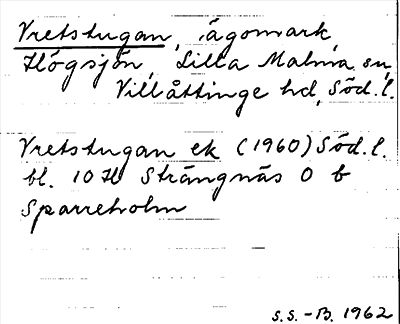 Vretstugan, ägomark,
Högsjön, Lilla Malma sn,
Villåttinge hd, Söd. l.
Vretstugan ek (1960) Söd. l.
bl. 10 H Strängnäs O b
Sparreholm
S.S. - B. 1962